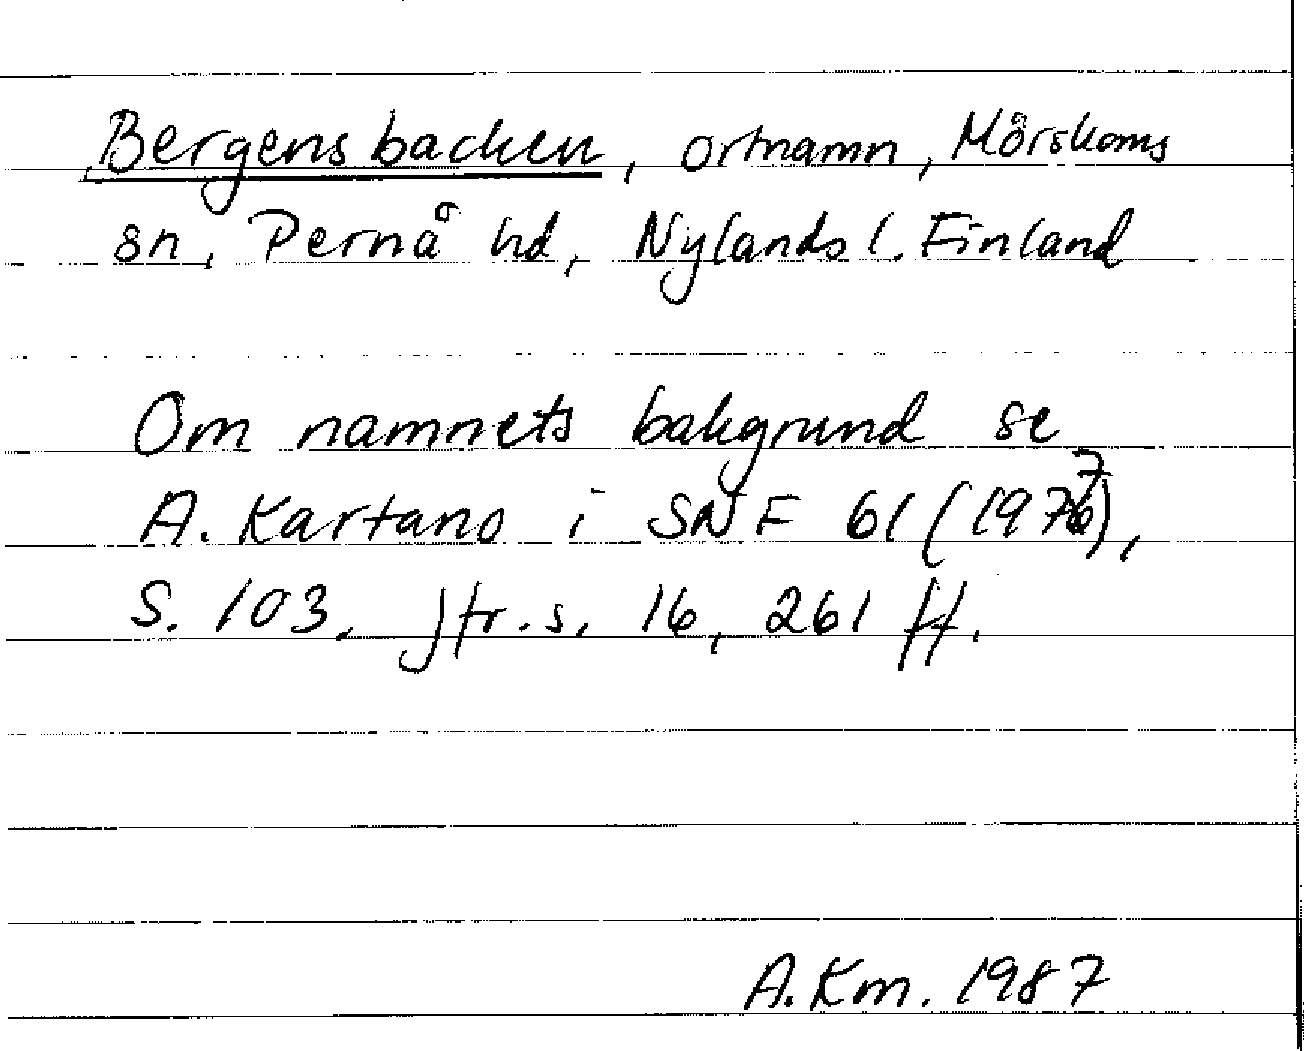 Bergensbacken, ortnamn, Mörskoms
sn, Pernå hd, Nylands l. Finland
Om namnets bakgrund se
A. Kartano i SNF 61 (1977),
s. 103, jfr. s. 16, 261 ff.
A. Km. 1987